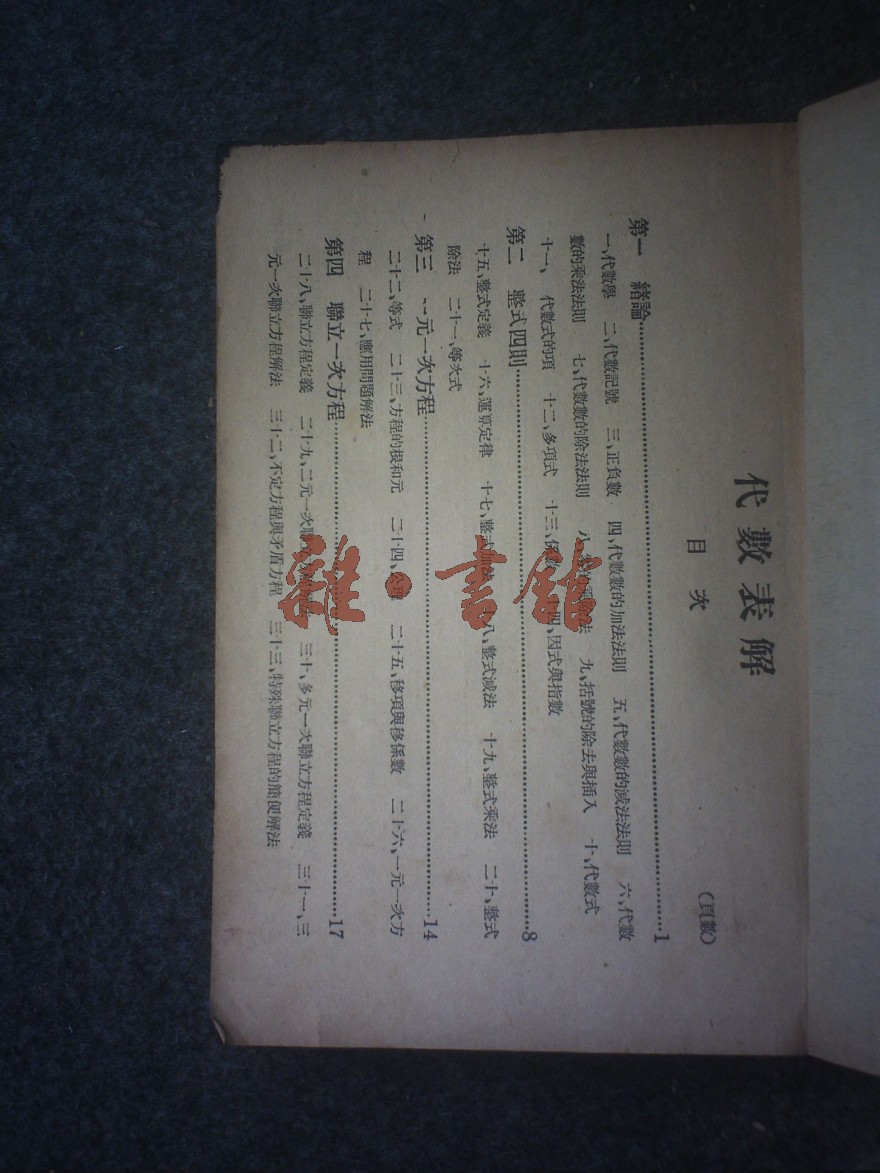 代數表解
目次
(頁數)
第一 緒論……1
一、代數學 二、代數記號 三、正負數 四、代數數的加法法則 五、代數數的減法法則 六、代數
數的乘法法則 七、代數數的除法法則 八、 法 九、括號的除去與插入 十、代數式
十一、代數式的項 十二、多項式 十三、係數 十四、因式與指數
第二 整式四則……8
十五、整式定義 十六、運算定律 十七、整式加法 十八、整式減法 十九、整式乘法 二十、整式
除法 二十一、等次式
第三 一元一次方程……14
二十二、等式 二十三、方程的根和元 二十四、公理 二十五、移項與移係數 二十六、一元一次方
程 二十七、應用問題解法
第四 聯立一次方程……17
二十八、聯立方程定義 二十九、二元一次聯立 解法 三十、多元一次聯立方程定義 三十一、三
元一次聯立方程解法 三十二、不定方程與矛盾方程 三十三、特殊聯立方程的簡便解法